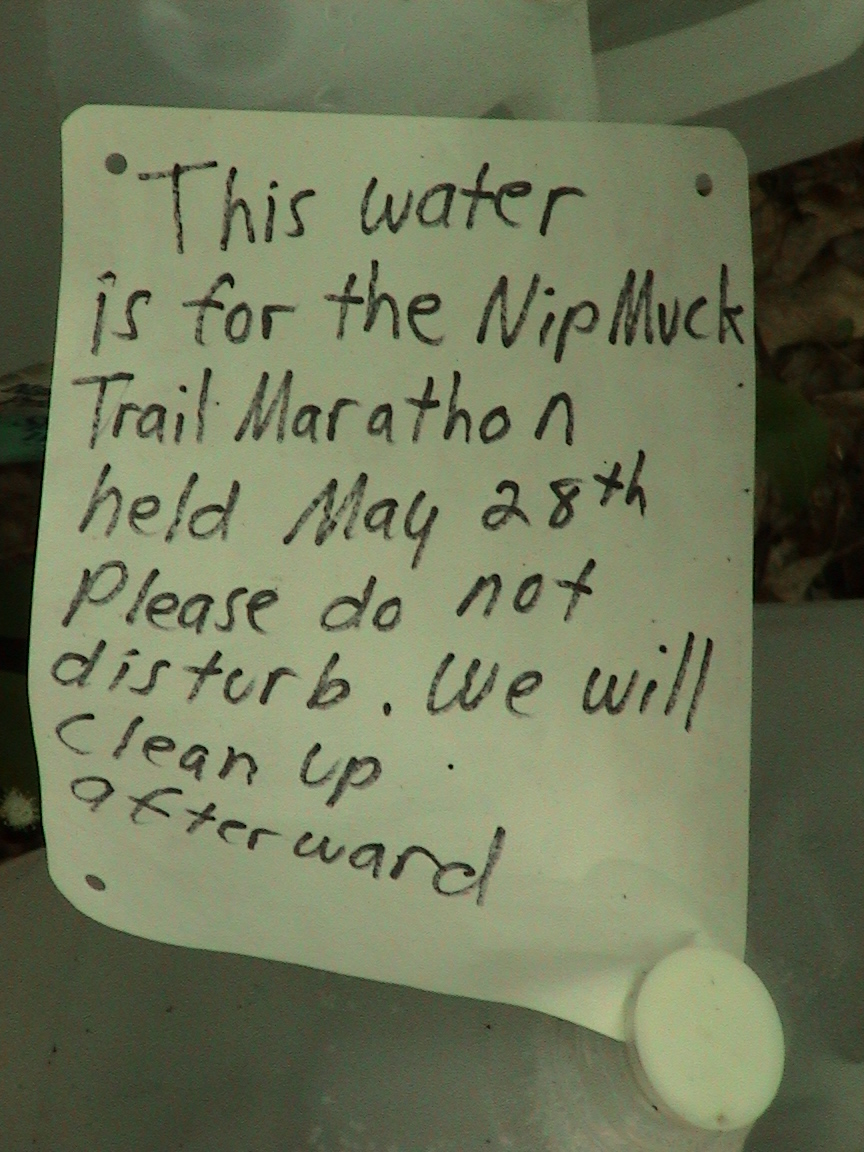 This water
is for the NipMuck
Trail Marathon
held May 28th
Please do not
disturb. We will
clean up
afterward